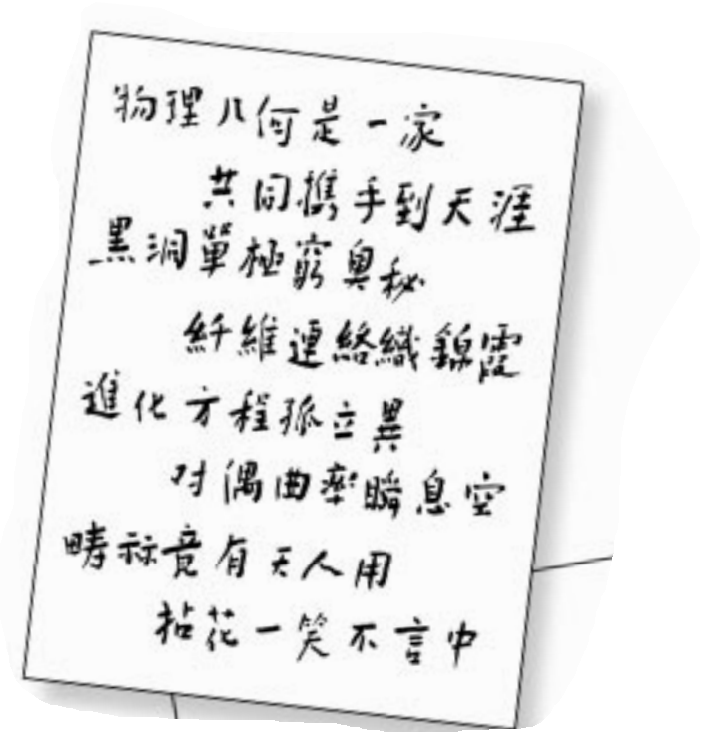 物理几何是一家
共同携手到天涯
黑洞單極窮奧秘
纤維連絡織錦霞
進化方程孤立異
对偶曲率瞬息空
疇祘竟有天人用
拈花一笑不言中